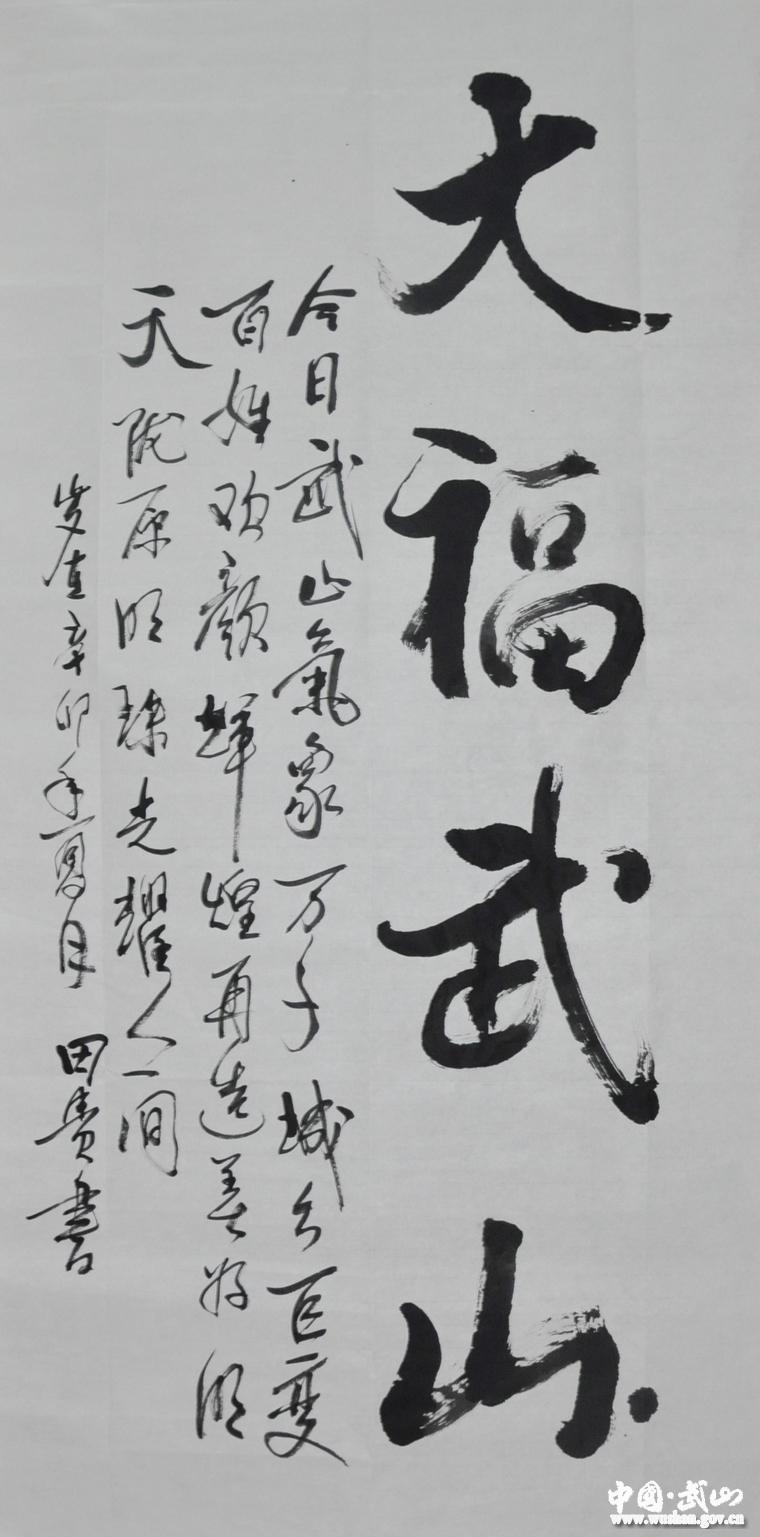 大福武山
今日武山氣象万千城乡巨變
百姓欢颜辉煌再造美好明
天陇原明珠光耀人间
岁值辛卯年夏月 田贵書
中國·武山
www.wushan.gov.cn